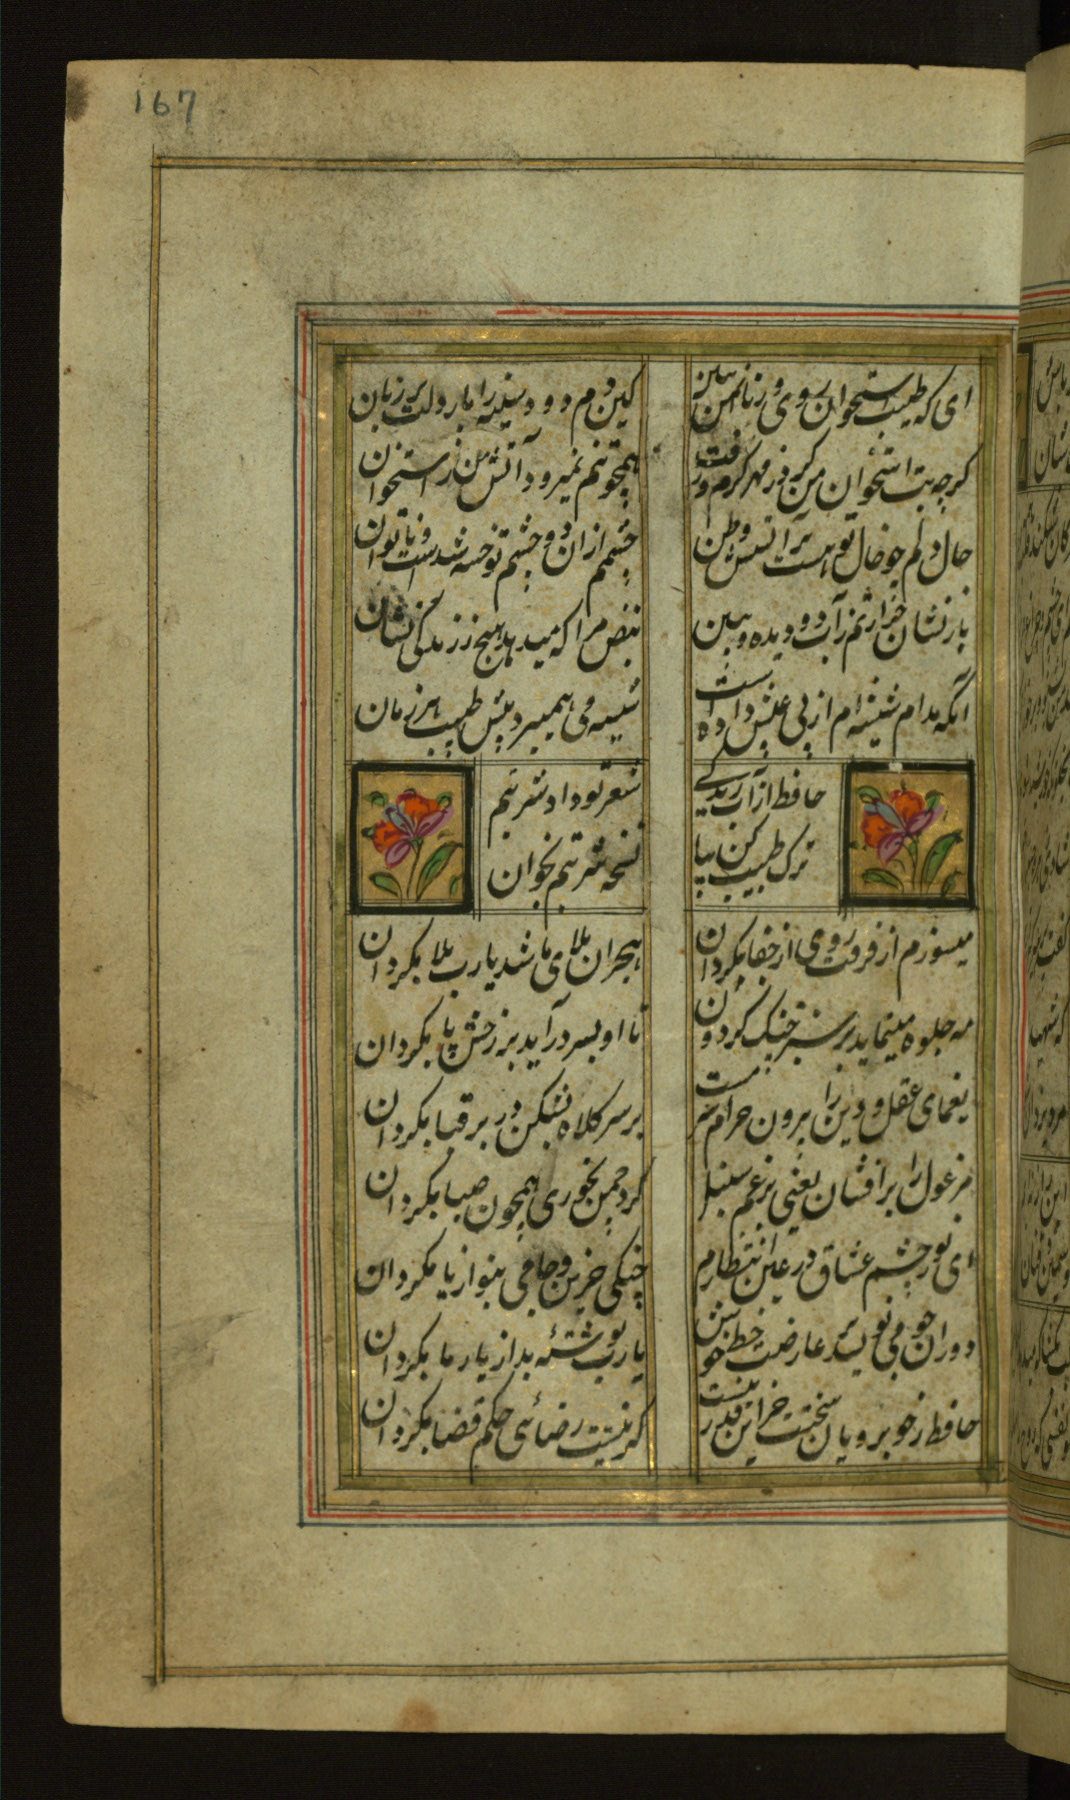 167
ای که طبیب استخوان روی و زبان من ببین
کین دم و دود سینه را بار دلست بر زبان
کرچه تب استخوان من کرد ز مهر کرم و رفت
همچو تبم نمیرود آتش من ز استخوان
حال دلم چو خال تو هست بر آتشش وطن
چشمم ازان دو چشم تو خسته شدست و ناتوان
باز نشان حرارتم ز آب دو دیده و ببین
نبض مرا که میدهد هیچ ز زندگی نشان
آنکه مدام شیشه ام از پی عیش داده است
شیشه و می همیبرد پیش طبیب هر زمان
حافظ از آب زندگی
شعر تو داد شربتم
ترک طبیب کن بیا
نسخه شربتم بخوان
میسوزم از فرقت روی از جفا بکردان
هجران بلای ما شد یارب بلا بکردان
مه جلوه مینماید بر سبز خنک کردون
تا او بسر درآید بر رخش پا بکردان
یغمای عقل و دین را بیرون خرام سرمست
بر سر کلاه بشکن در بر قبا بکردان
مرغول را برافشان یعنی برغم سنبل
کرد چمن بخوری همچون صبا بکردان
ای نور چشم عشاق در عین انتظارم
چنکی حزین و جامی بنواز یا بکردان
دوران چو می نویسد بر عارضت خط خوش
یارب نوشته بد از یار ما بکردان
حافظ ز خوبرویان بختت جز این قدر نیست
کر نیست رضائی حکم قضا بکردان